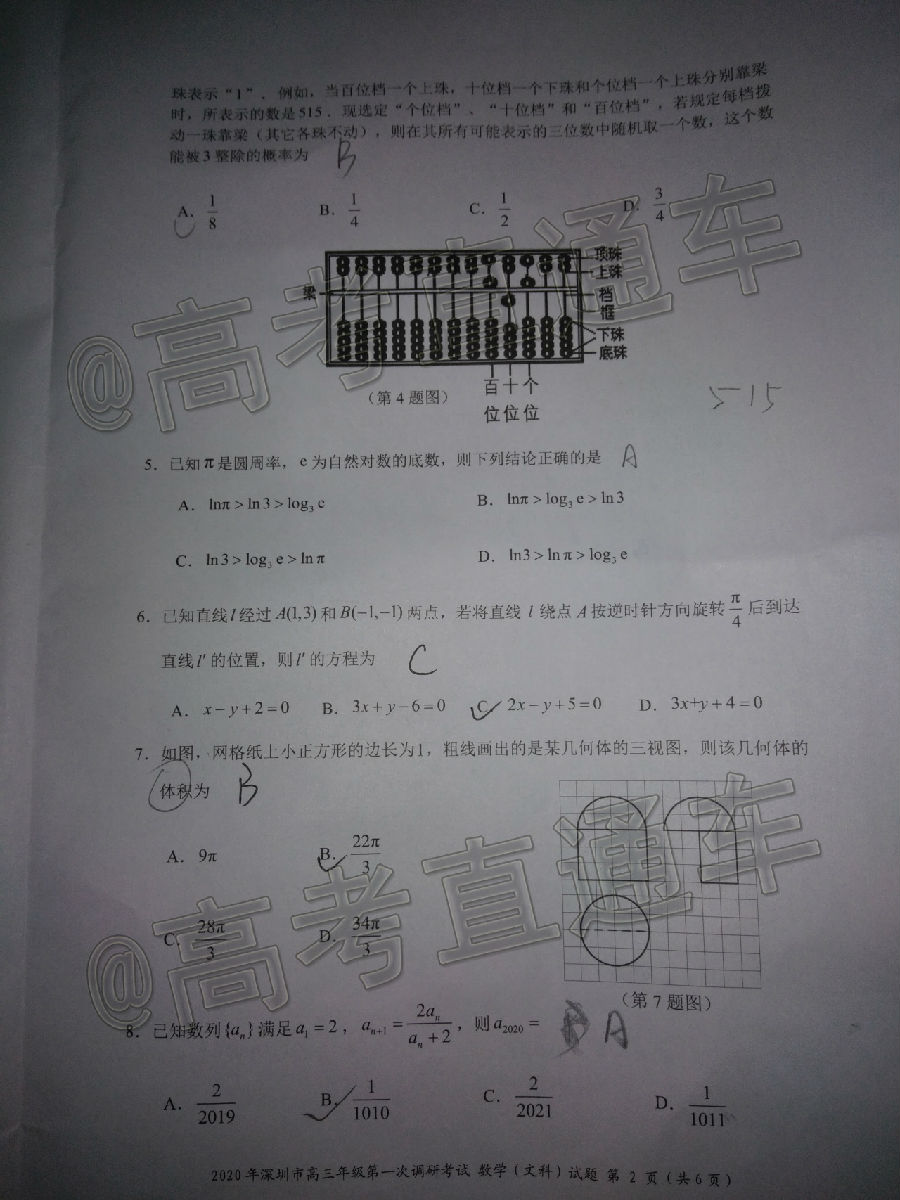 珠表示“1”．例如，当百位档一个上珠，十位档一个下珠和个位档一个上珠分别靠梁
时，所表示的数是515．现选定“个位档”、“十位档”和“百位档”，若规定每档拨
动一珠靠梁（其它各珠不动），则在其所有可能表示的三位数中随机取一个数，这个数
能被3整除的概率为 B
A. 1/8 B. 1/4 C. 1/2 D. 3/4
顶珠
上珠
梁
档
框
下珠
底珠
百十个
位位位
（第4题图）
515
5．已知π是圆周率，e为自然对数的底数，则下列结论正确的是 A
A. lnπ>ln3>log₃e B. lnπ>log₃e>ln3
C. ln3>log₃e>lnπ D. ln3>lnπ>log₃e
6．已知直线l经过A(1,3)和B(−1,−1)两点，若将直线l绕点A按逆时针方向旋转π/4后到达
直线l′的位置，则l′的方程为 C
A. x−y+2=0 B. 3x+y−6=0 C. 2x−y+5=0 D. 3x+y+4=0
7．如图，网格纸上小正方形的边长为1，粗线画出的是某几何体的三视图，则该几何体的
体积为 B
A. 9π B. 22π/3
C. 28π/3 D. 34π/3
（第7题图）
8．已知数列{aₙ}满足a₁=2，aₙ₊₁=2aₙ/(aₙ+2)，则a₂₀₂₀= B A
A. 2/2019 B. 1/1010 C. 2/2021 D. 1/1011
2020年深圳市高三年级第一次调研考试 数学（文科）试题 第2页（共6页）
@高考直通车
@高考直通车